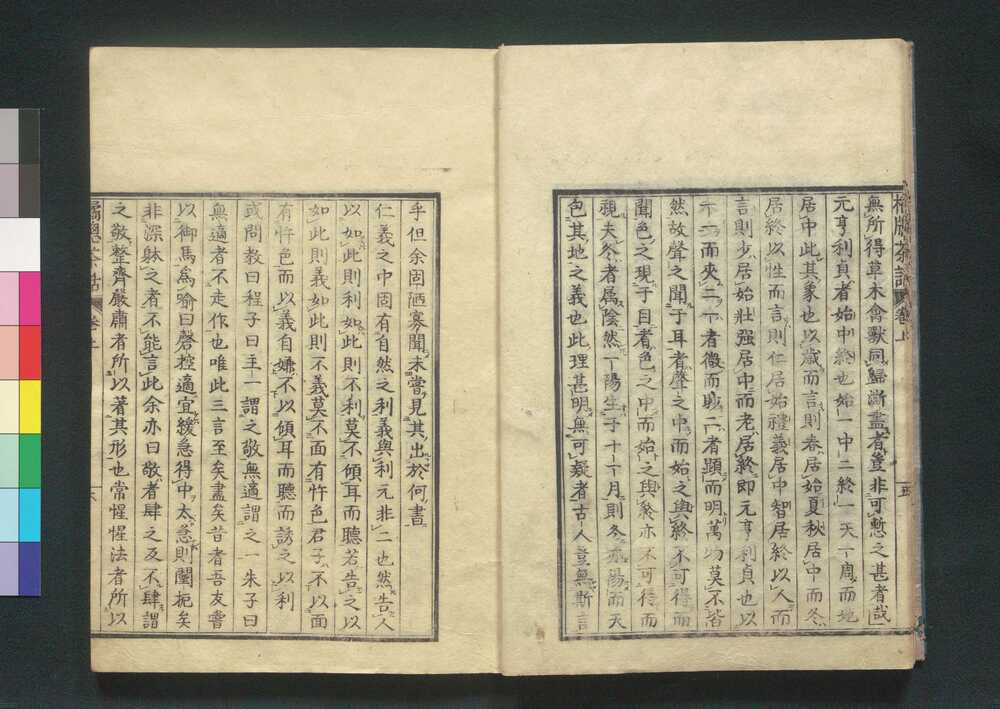 茶話 卷上
無所得草木禽獸同歸澌盡者豈非可慙之甚者哉
元亨利貞者始中終也始一中二終一天下一周而地
居中此其象也以歲而言則春居始夏秋居中而冬
居終以性而言則仁居始禮義居中智居終以人而
言則少居始壯强居中而老居終即元亨利貞也以
一而夾二一者微而二者顯而明萬物莫不皆
然故聲之聞于耳者聲之中而始之與終不可得而
聞色之現于目者色之中而始之與終亦不可得而
視夫冬者属陰然一陽生于十一月則冬亦陽而天
包其地之義也此理甚明無可疑者古人豈無斯言
乎但余固陋寡聞未嘗見其出於何書
仁義之中固有自然之利義與利元非二也然告人
以如此則利如此則不利莫不傾耳而聽若告之以
如此則義如此則不義莫不面有忤色君子不以面
有忤色而以義自嫌不以傾耳而聽而誘之以利
或問敬曰程子曰主一謂之敬無適謂之一朱子曰
無適者不走作也唯此三言至矣盡矣昔者吾友嘗
以御馬爲喻曰磬控適宜緩急得中太急則闌扼矣
非深躰之者不能言此余亦曰敬者肆之反不肆謂
之敬整齊嚴肅者所以著其形也常惺惺法者所以
橘窻茶話 卷上